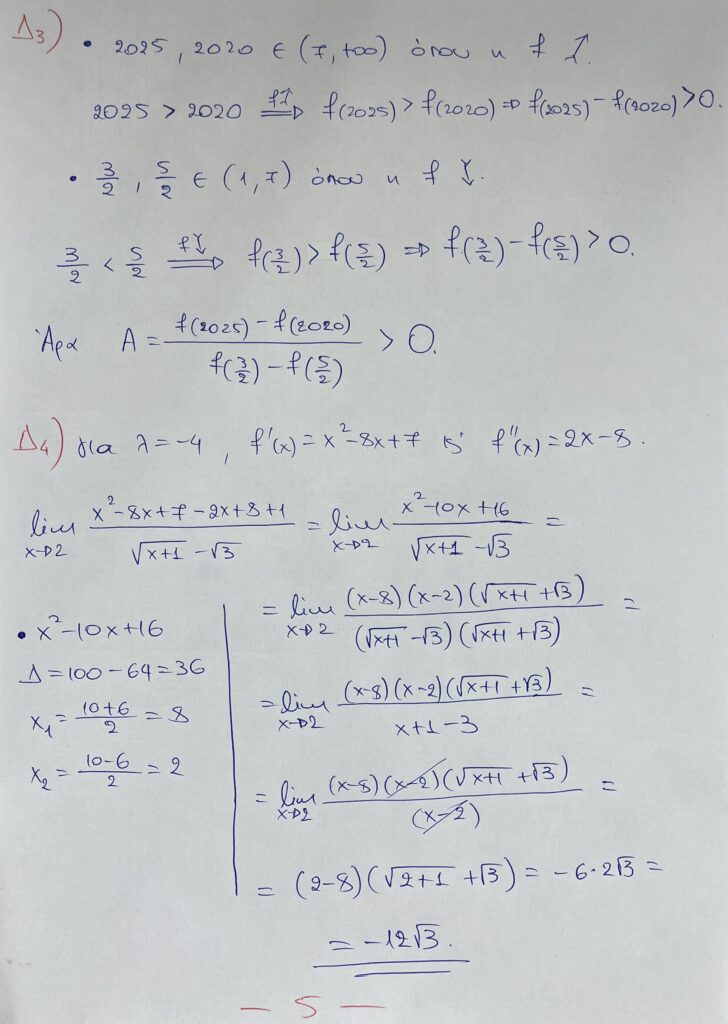 Δ3) • 2025, 2020 ∈ (7, +∞) όπου η f ↗.
2025 > 2020 =f↗=> f(2025) > f(2020) ⇒ f(2025) - f(2020) > 0.
• 3/2, 5/2 ∈ (1, 7) όπου η f ↘.
3/2 < 5/2 =f↘=> f(3/2) > f(5/2) ⇒ f(3/2) - f(5/2) > 0.
Άρα A = (f(2025) - f(2020)) / (f(3/2) - f(5/2)) > 0.
Δ4) για λ = -4, f'(x) = x² - 8x + 7 κ' f''(x) = 2x - 8.
lim x→2 (x² - 8x + 7 - 2x + 8 + 1) / (√(x+1) - √3) = lim x→2 (x² - 10x + 16) / (√(x+1) - √3) =
• x² - 10x + 16
Δ = 100 - 64 = 36
x₁ = (10+6)/2 = 8
x₂ = (10-6)/2 = 2
= lim x→2 (x-8)(x-2)(√(x+1) + √3) / (√(x+1) - √3)(√(x+1) + √3) =
= lim x→2 (x-8)(x-2)(√(x+1) + √3) / (x+1-3) =
= lim x→2 (x-8)(x-2)(√(x+1) + √3) / (x-2) =
= (2-8)(√(2+1) + √3) = -6·2√3 =
= -12√3.
— 5 —